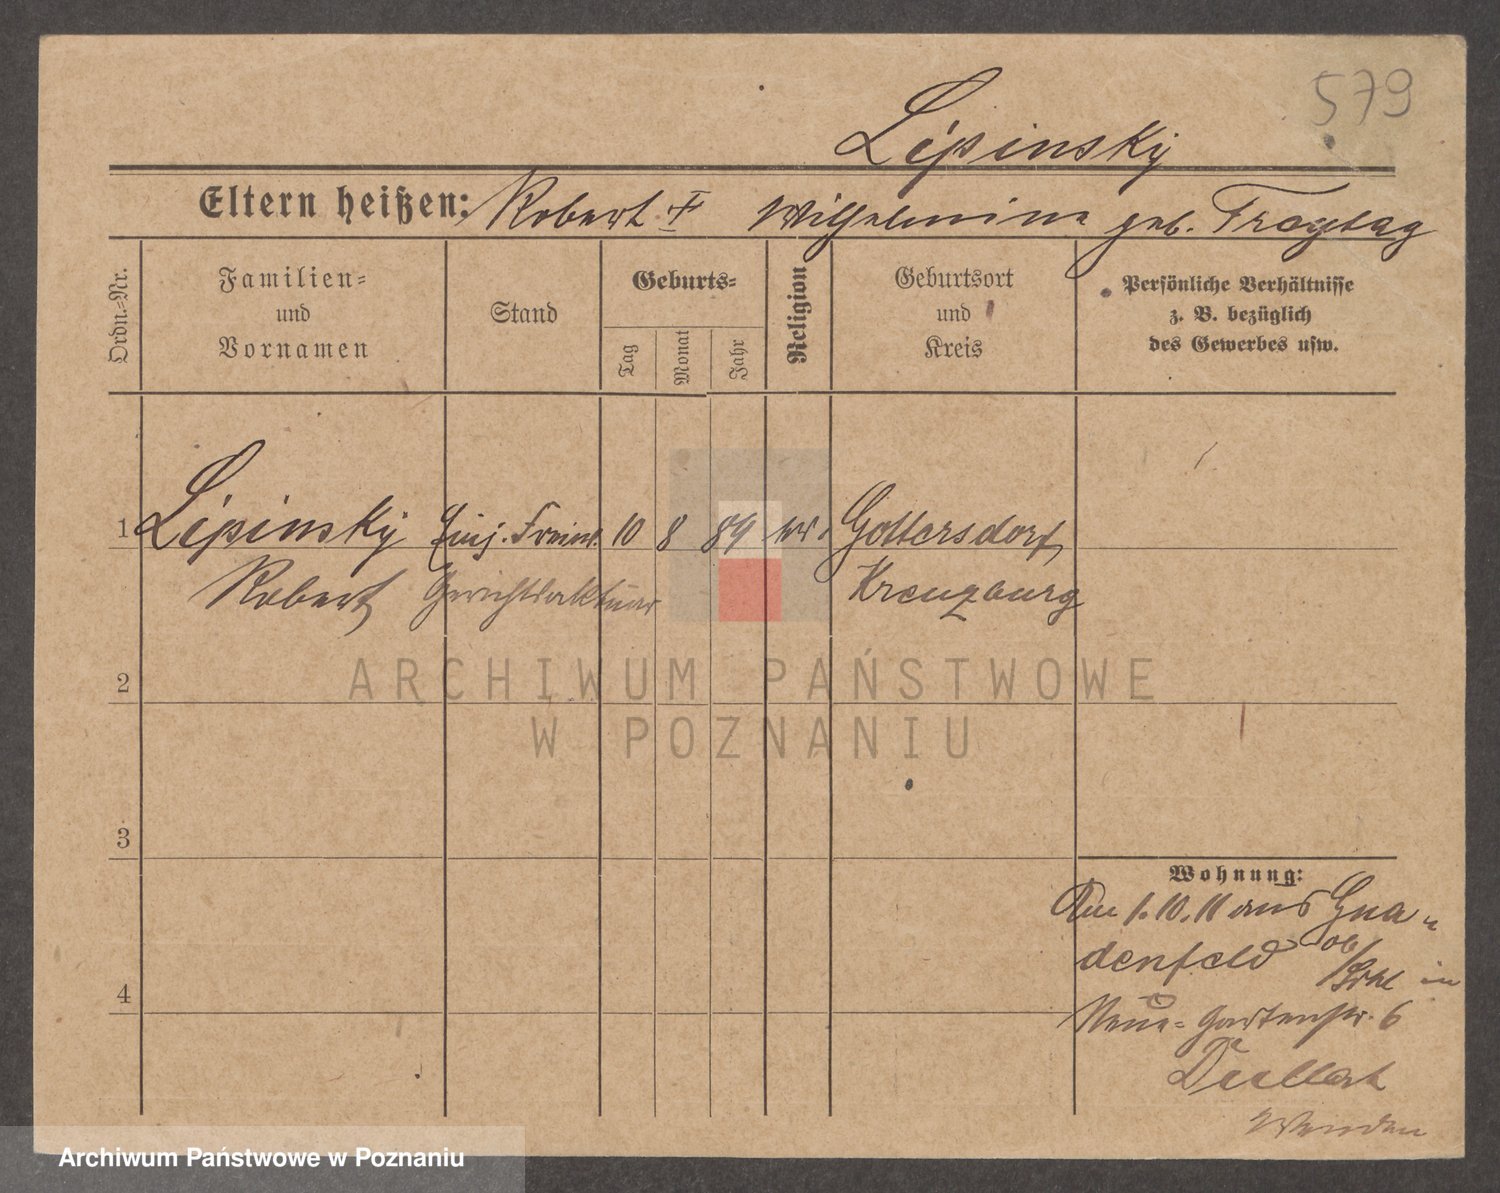 579
Lipinsky
Eltern heißen: Robert † Wilhelmine geb. Freytag
Ordn.-Nr.
Familien-
und
Vornamen
Stand
Geburts-
Tag
Monat
Jahr
Religion
Geburtsort
und
Kreis
Persönliche Verhältnisse
z. B. bezüglich
des Gewerbes usw.
1 Lipinsky Einj. Freiw. 10 8 89 Gottersdorf
Robert Gerichtsaktuar Kreuzburg
2
3
4
Wohnung:
Am 1.10.11 aus Gna-
denfeld in
Neue-Gartenstr. 6
ARCHIWUM PAŃSTWOWE
W POZNANIU
Archiwum Państwowe w Poznaniu